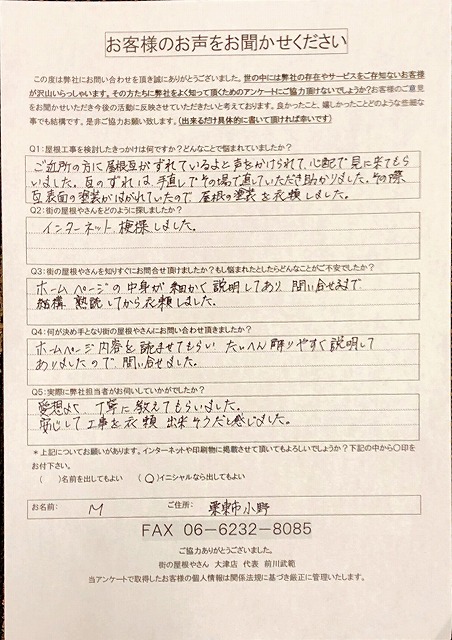 お客様のお声をお聞かせください
この度は弊社にお問い合わせを頂き誠にありがとうございました。世の中には弊社の存在やサービスをご存知ないお客様
が沢山いらっしゃいます。その方たちに弊社をよく知って頂くためのアンケートにご協力頂けないでしょうか?お客様のご意見
をお聞かせいただき今後の活動に反映させていただきたいと考えております。良かったこと、嬉しかったことどのような些細な
事でも結構です。是非ご協力お願い致します。(出来るだけ具体的に書いて頂ければ幸いです)
Q1:屋根工事を検討したきっかけは何ですか?どんなことで悩まれていましたか?
ご近所の方に屋根瓦がずれているよと声をかけられて、心配で見に来てもら
いました。瓦のずれは、手直しでその場で直していただき助かりました。その際
瓦表面の塗装がはがれていたので屋根の塗装を依頼しました。
Q2:街の屋根やさんをどのように探しましたか?
インターネット検探しました。
Q3:街の屋根やさんを知りすぐにお問合せ頂けましたか?もし悩まれたとしたらどんなことがご不安でしたか?
ホームページの中身が細かく説明してあり 問い合せまで
結構 熟読してから依頼しました。
Q4:何が決め手となり街の屋根やさんにお問い合わせ頂けましたか?
ホームページ内容を読ませてもらい たいへん解りやすく説明して
ありましたので 問い合せました。
Q5:実際に弊社担当者がお伺いしていかがでしたか?
愛想よく 丁寧に教えてもらいました。
安心して工事を依頼 出来そうだと感じました。
*上記についてお願いがあります。インターネットや印刷物に掲載させて頂いてもよろしいでしょうか?下記の中から〇印を
お付け下さい。
( )名前を出してもよい (〇)イニシャルなら出してもよい
お名前: M ご住所: 栗東市小野
FAX 06-6232-8085
ご協力ありがとうございました。
街の屋根やさん 大津店 代表 前川武範
当アンケートで取得したお客様の個人情報は関係法規に基づき厳正に管理いたします。